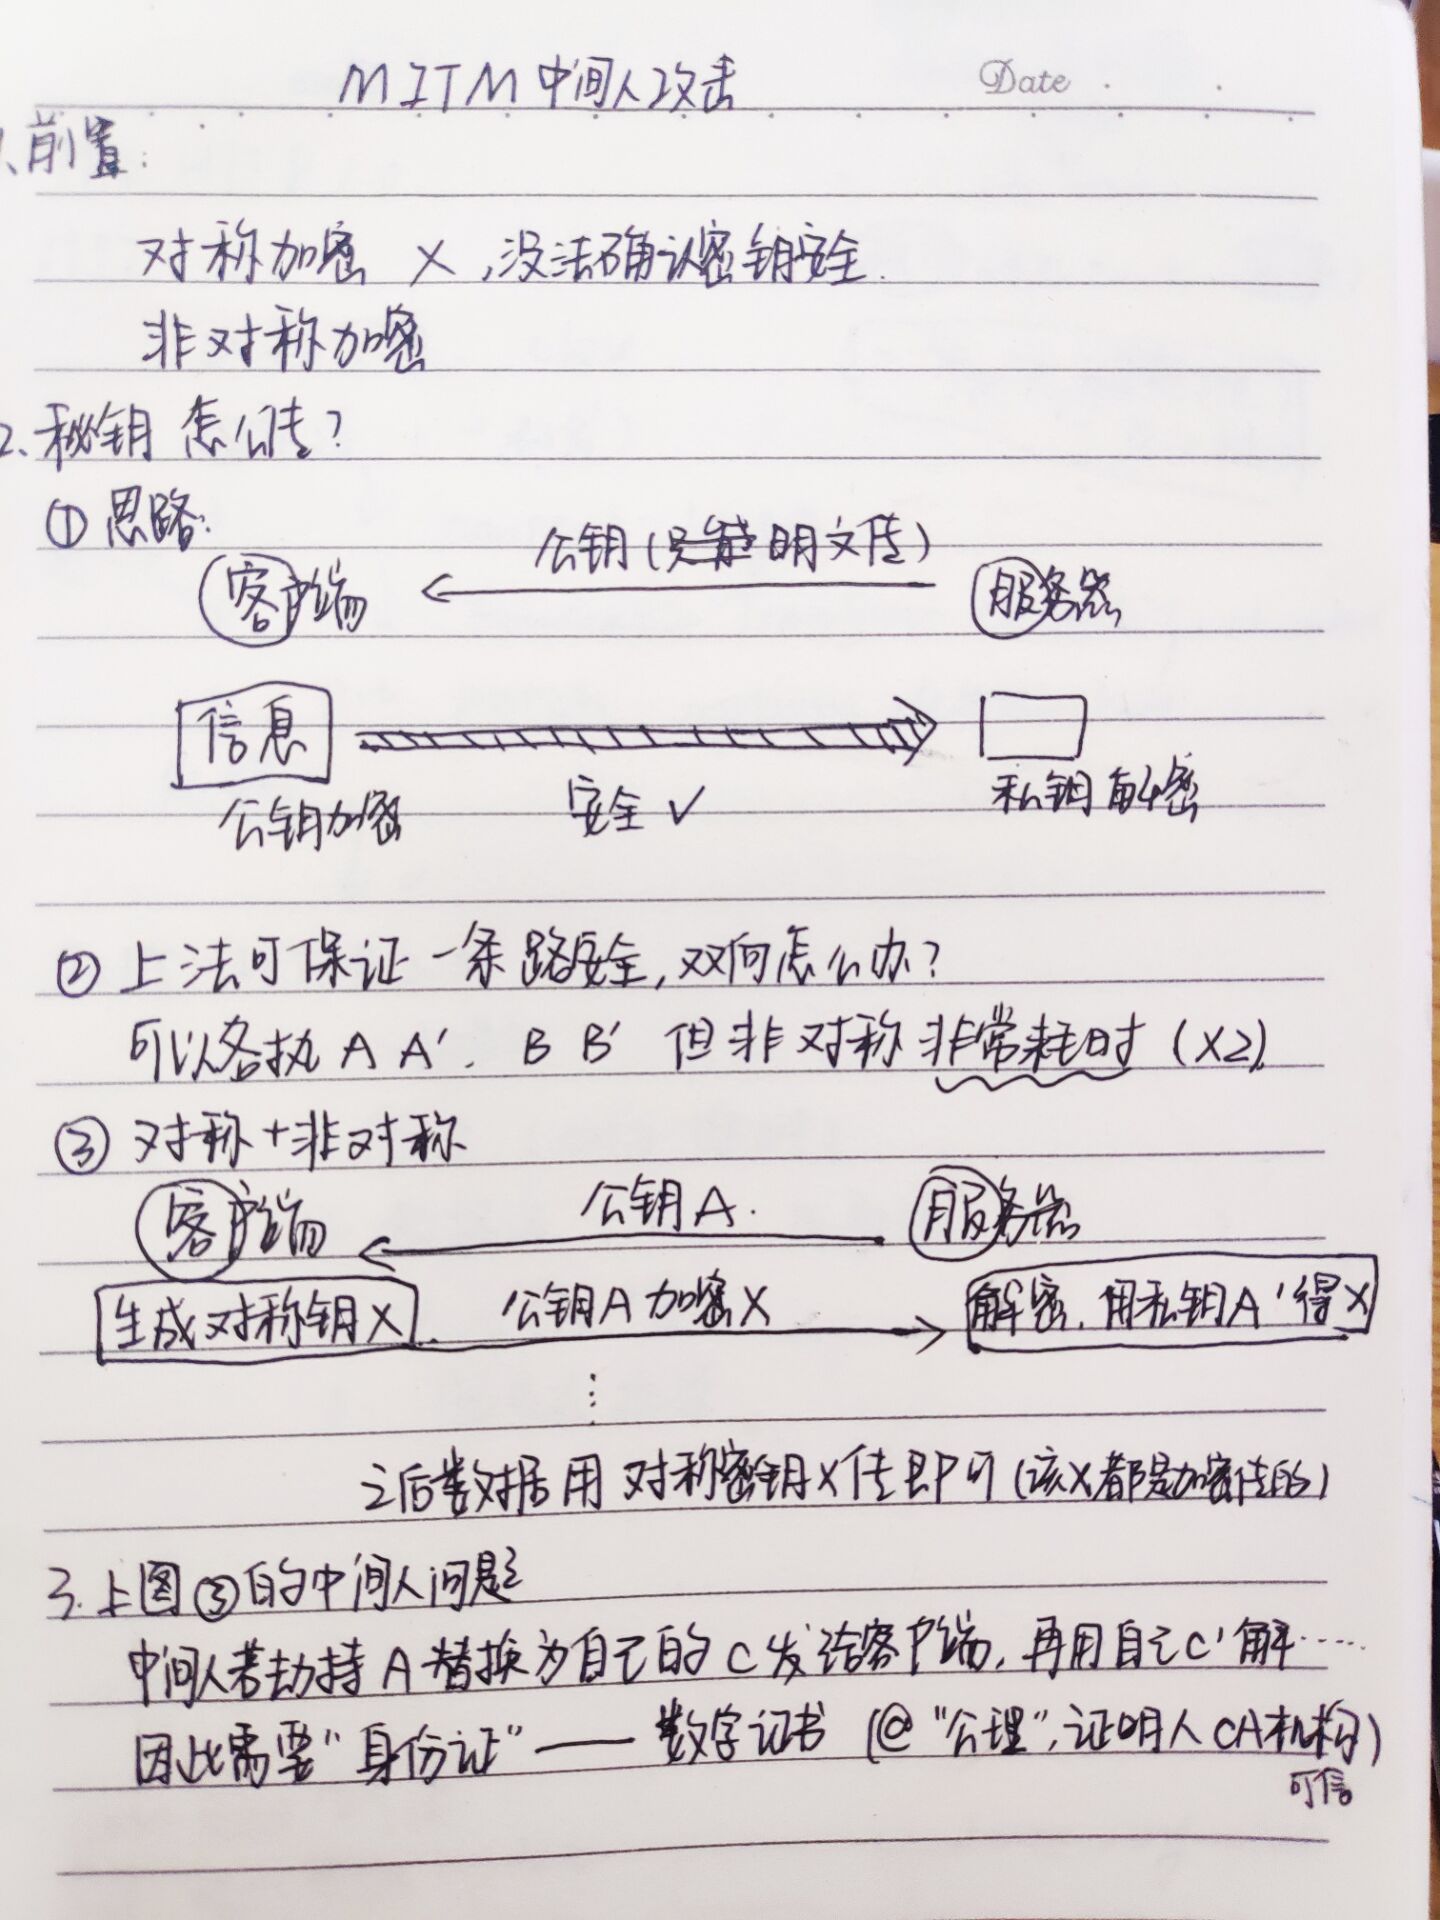 MITM 中间人攻击
Date
1、前置:
对称加密 ×,没法确认密钥安全.
非对称加密
2、秘钥 怎么传?
① 思路:
公钥(明文传)
客户端
服务器
信息
公钥加密
安全 ✓
私钥解密
② 上法可保证一条路安全,双向怎么办?
可以各执 A A′. B B′ 但非对称非常耗时(×2).
③ 对称+非对称
公钥A.
客户端
服务器
生成对称钥X
公钥A加密X
解密.用私钥A′得X
⋮
之后数据用对称密钥X传即可(该X都是加密传的)
3.上图③的中间人问题
中间人若劫持A替换为自己的C发给客户端,再用自己C′解……
因此需要“身份证”——数字证书(@“公理”,证明人CA机构)
可信